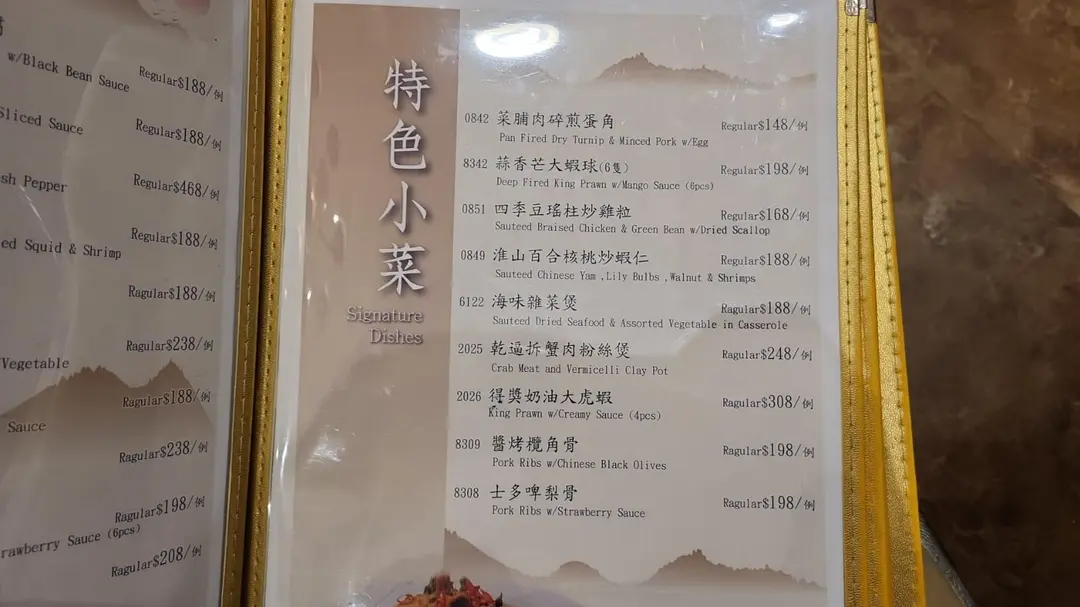 w/Black Bean Sauce
Regular$188/例
Sliced Sauce
Regular$188/例
sh Pepper
Regular$468/例
ed Squid & Shrimp
Regular$188/例
Ragular$188/例
Ragular$238/例
/Vegetable
Ragular$188/例
Sauce
Ragular$238/例
Ragular$198/例
rawberry Sauce (6pcs)
Ragular$208/例
特色小菜
Signature
Dishes
0842 菜脯肉碎煎蛋角 Regular$148/例
Pan Fired Dry Turnip & Minced Pork w/Egg
8342 蒜香芒大蝦球(6隻) Regular$198/例
Deep Fired King Prawn w/Mango Sauce (6pcs)
0851 四季豆瑤柱炒雞粒 Regular$168/例
Sauteed Braised Chicken & Green Bean w/Dried Scallop
0849 淮山百合核桃炒蝦仁 Regular$188/例
Sauteed Chinese Yam ,Lily Bulbs ,Walnut & Shrimps
6122 海味雜菜煲 Ragular$188/例
Sautced Dried Seafood & Assorted Vegetable in Casserole
2025 乾逼拆蟹肉粉絲煲 Ragular$248/例
Crab Meat and Vermicelli Clay Pot
2026 得獎奶油大虎蝦 Ragular$308/例
King Prawn w/Creamy Sauce (4pcs)
8309 醬烤欖角骨 Ragular$198/例
Pork Ribs w/Chinese Black Olives
8308 士多啤梨骨 Ragular$198/例
Pork Ribs w/Strawberry Sauce